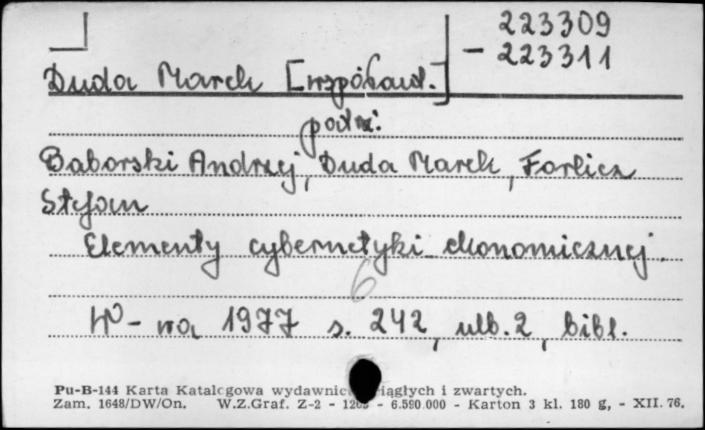 223309
- 223311
Duda Marek [współaut.]
patrz:
Baborski Andrzej, Duda Marek, Forlicz
Stefan
Elementy cybernetyki ekonomicznej.
6
W-wa 1977 s. 242, nlb. 2, bibl.
Pu-B-144 Karta Katalogowa wydawnictw ciągłych i zwartych.
Zam. 1648/DW/On. W.Z.Graf. Z-2 - 1205 - 6.590.000 - Karton 3 kl. 180 g, - XII. 76.